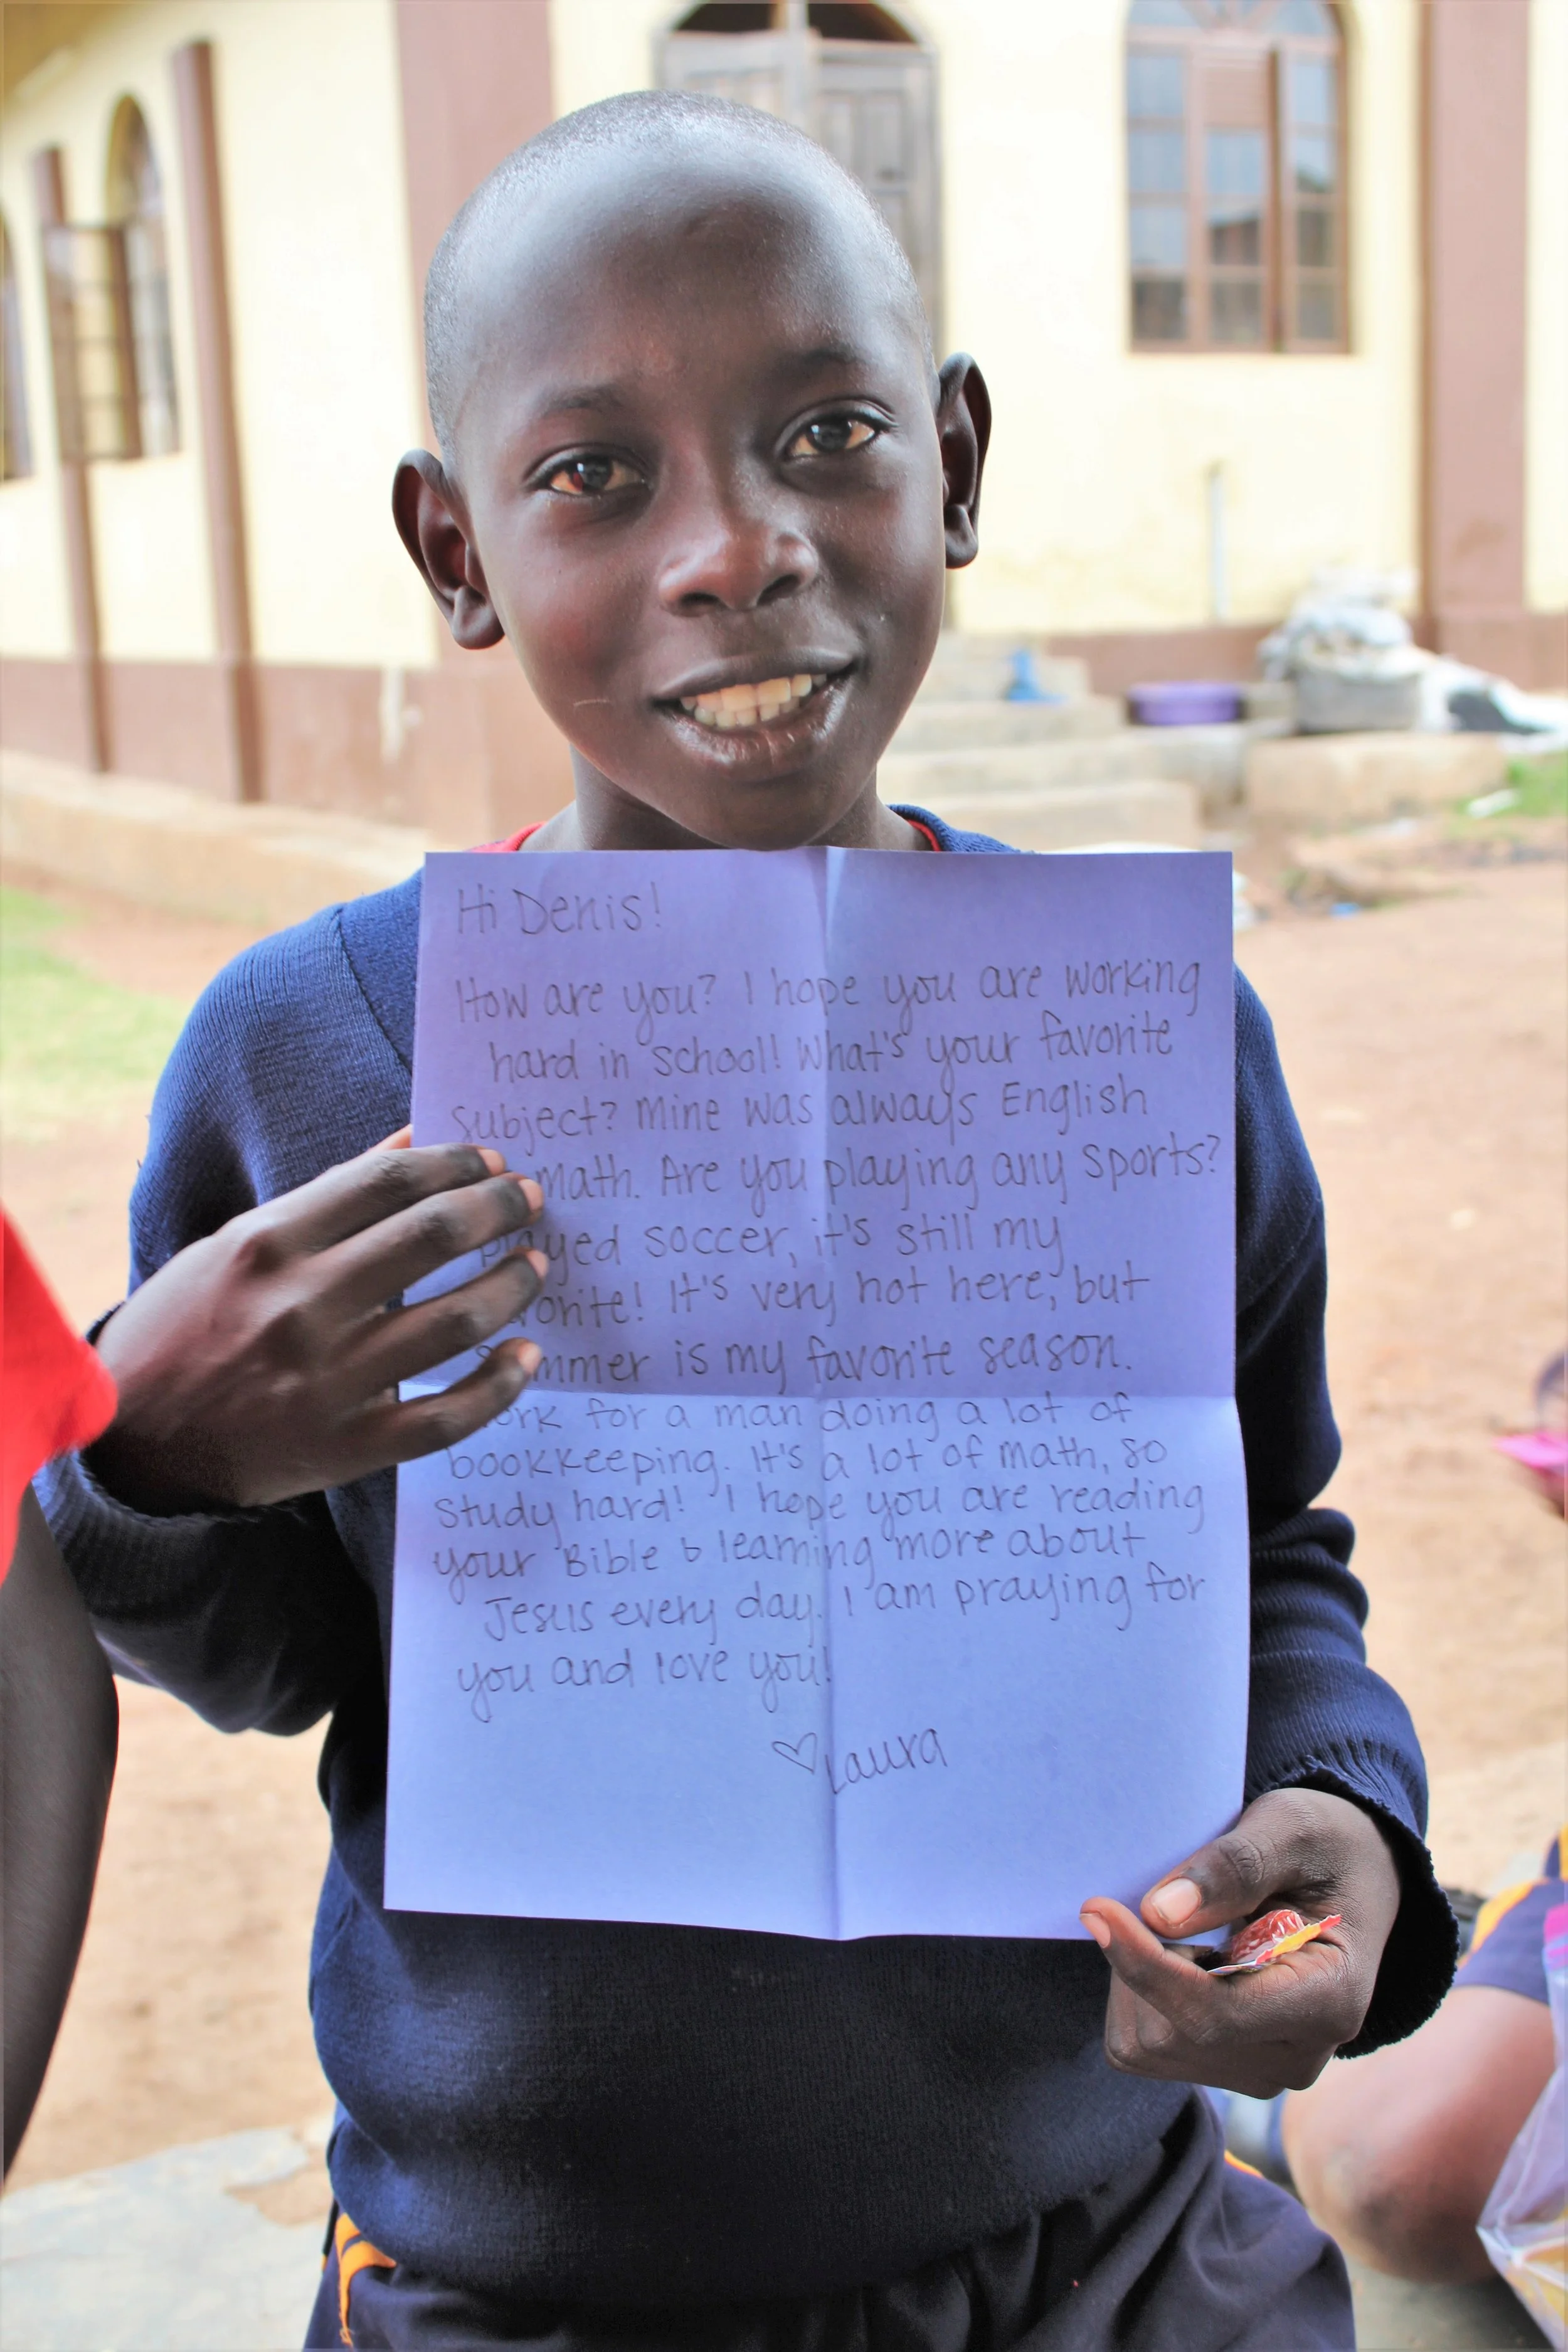 Hi Denis!
How are you? I hope you are working
hard in school! What's your favorite
subject? Mine was always English
math. Are you playing any sports?
played soccer, it's still my
It's very hot here, but
summer is my favorite season.
for a man doing a lot of
bookkeeping. It's a lot of math, so
study hard! I hope you are reading
your Bible & learning more about
Jesus every day. I am praying for
you and love you!
♡ Laura